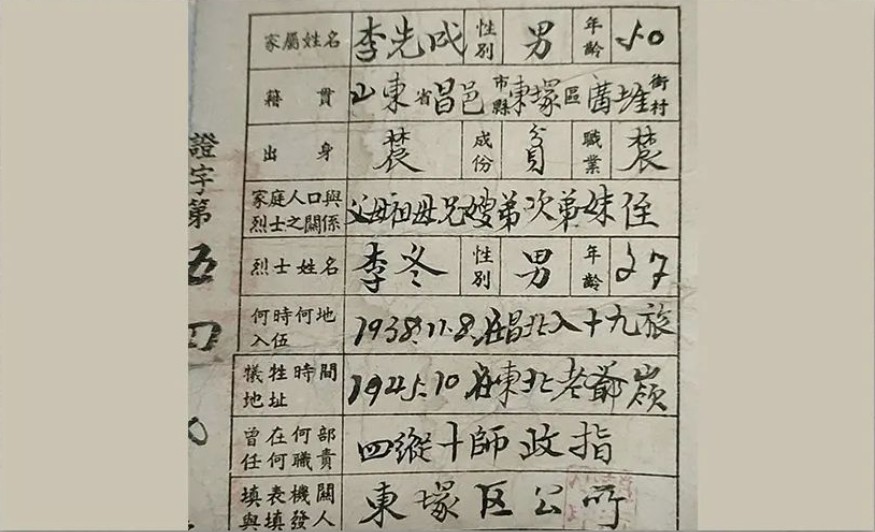 家屬姓名 李先成 性別 男 年齡 50
籍貫 山東省昌邑市縣東塚區廣堆街村
出身 農 成份 貧 職業 農
家庭人口與烈士之關係 父母祖母兄嫂弟次弟妹侄
烈士姓名 李冬 性別 男 年齡 27
何時何地入伍 1938.11.8.在昌北入十九旅
犧牲時間地址 1945.10在東北老爺嶺
曾在何部任何職責 四縱十師政指
填表機關與填發人 東塚区公所
證字第五四